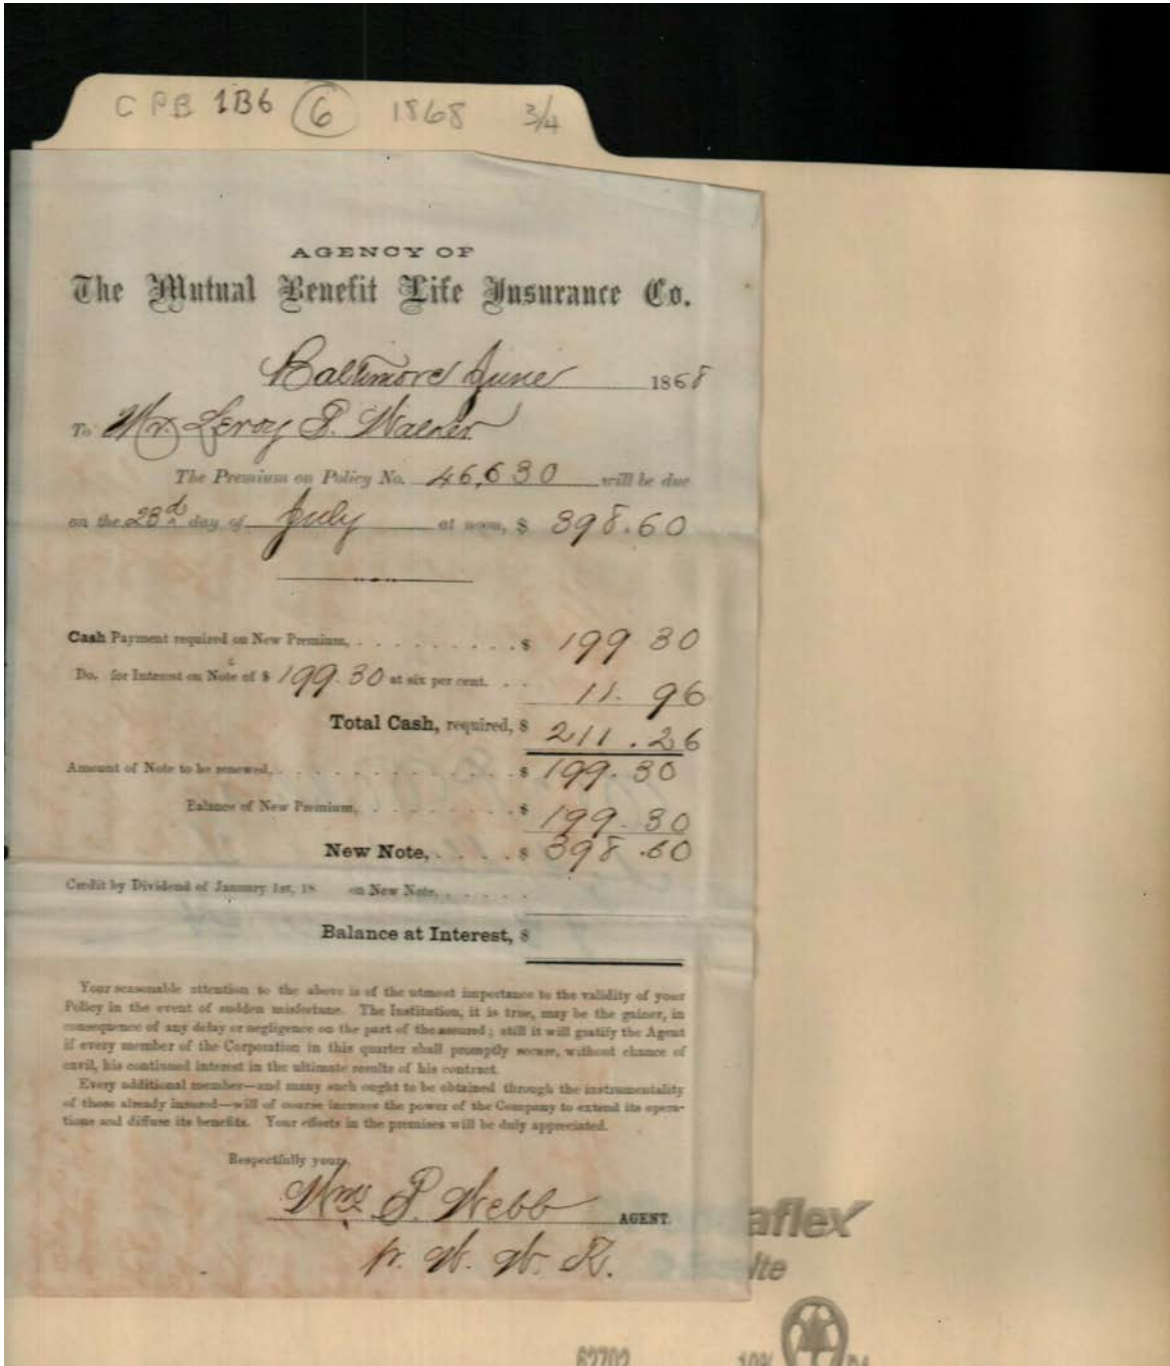 CPB 1B6 6 1868 3/4
AGENCY OF
The Mutual Benefit Life Insurance Co.
Baltimore June 1868
To Mr. Leroy P. Walker
The Premium on Policy No. 46,630 will be due
on the 23d day of July at noon, $ 398.60
Cash Payment required on New Premium, . . . . . . . . . . $ 199 30
Do. for Interest on Note of $ 199.30 at six per cent. . . 11. 96
Total Cash, required, $ 211.26
Amount of Note to be renewed, . . . . . . . . . . . . . . $ 199.30
Balance of New Premium, . . . . . . . . $ 199.30
New Note, . . . . $ 398.60
Credit by Dividend of January 1st, 18 on New Note, . . . . . .
Balance at Interest, $
Your seasonable attention to the above is of the utmost importance to the validity of your
Policy in the event of sudden misfortune. The Institution, it is true, may be the gainer, in
consequence of any delay or negligence on the part of the assured; still it will gratify the Agent
if every member of the Corporation in this quarter shall promptly secure, without chance of
cavil, his continued interest in the ultimate results of his contract.
Every additional member—and many such ought to be obtained through the instrumentality
of those already insured—will of course increase the power of the Company to extend its opera-
tions and diffuse its benefits. Your efforts in the premises will be duly appreciated.
Respectfully yours,
Wm P. Webb AGENT.
aflex
lte
62702 10%